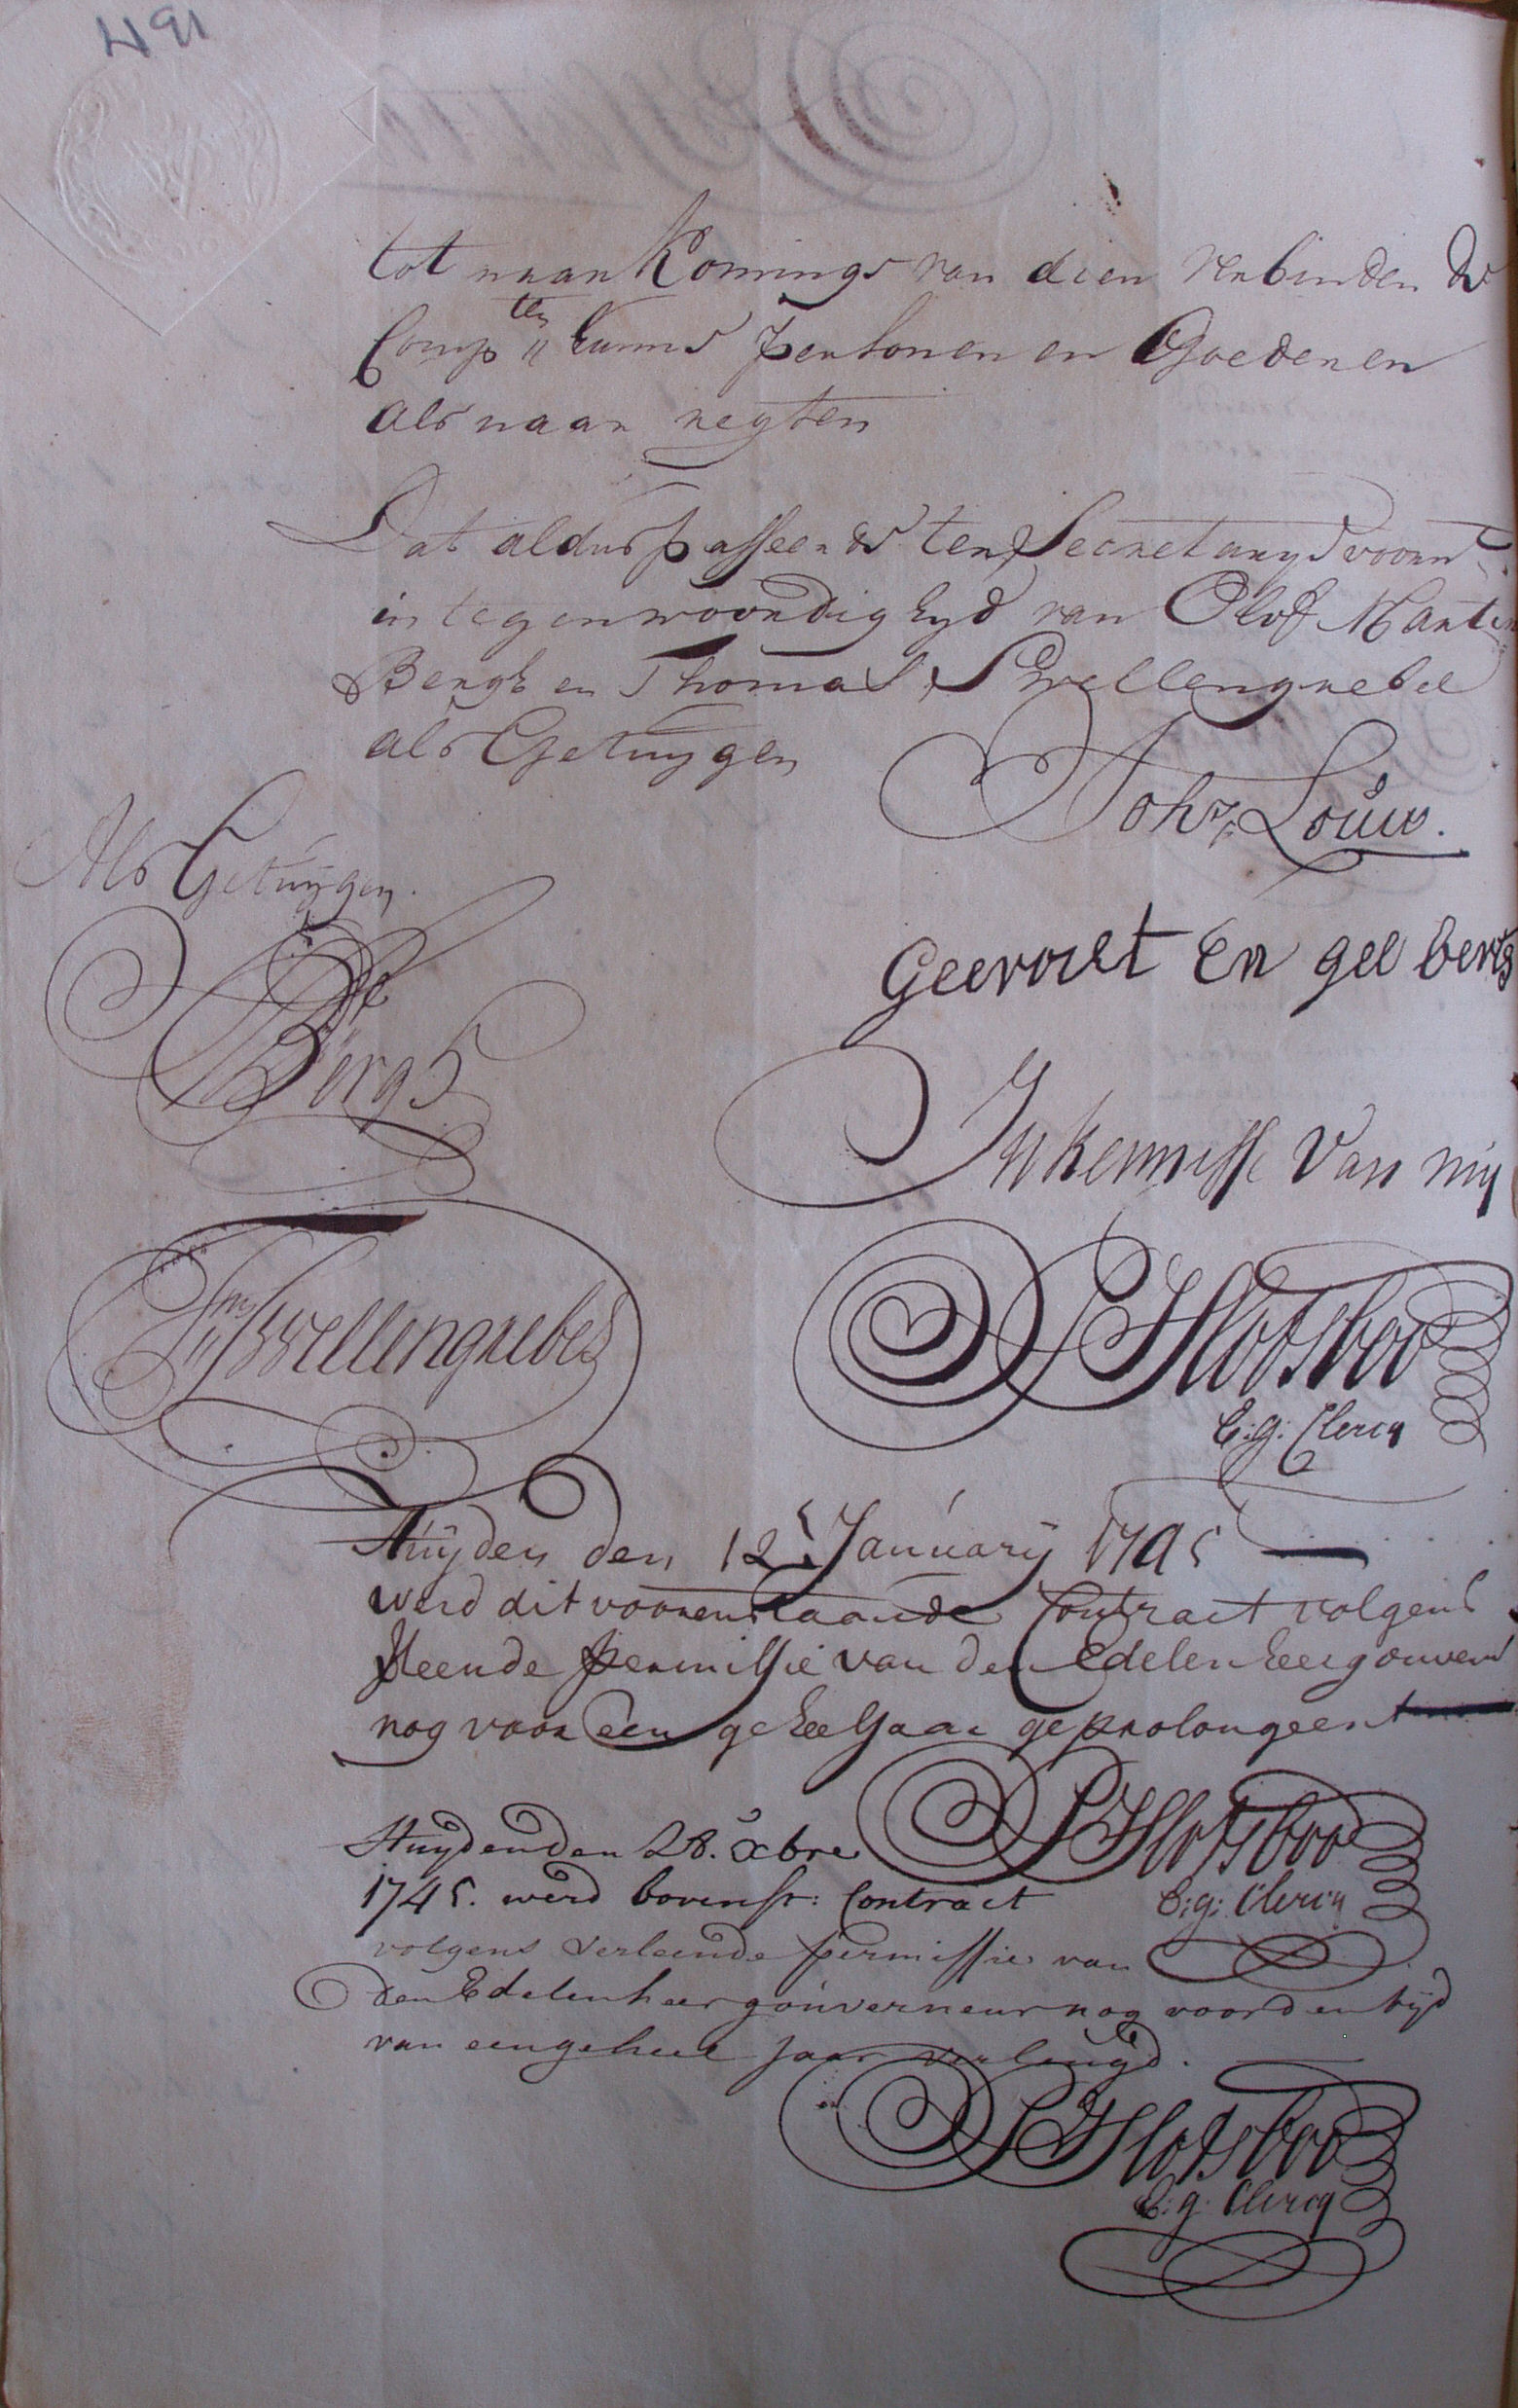 tot naar Komings van dien verbinden de
Comp:ten hunne persoonen en Goederen
als naar regten
Dat aldus passeerde ter Secretarije voorn:t
in tegenwoordigheyd van Olof Martin
Bergh en Thomas Swellengrebel
als Getuygen
Joh:s Louw.
Als Getuijgen.
Geevaert En gel berts
Bergh
In kennisse Van mij
Swellengrebel
J Slotsboo
E:g: Clercq
Huijden den 12 Januarij 1745
werd dit voorenstaande Contract volgens
permissie van den Edelen heer gouvern:r
nog voor een geheel Jaar geprolongeert
J Slotsboo
Huyden den 28. xbre
1745. werd bovenst: Contract
E:g: Clercq
volgens verleende permissie van
den Edelen heer gouverneur nog voor den tijd
van een geheel jaar verlengd.
J Slotsboo
E:g: Clercq